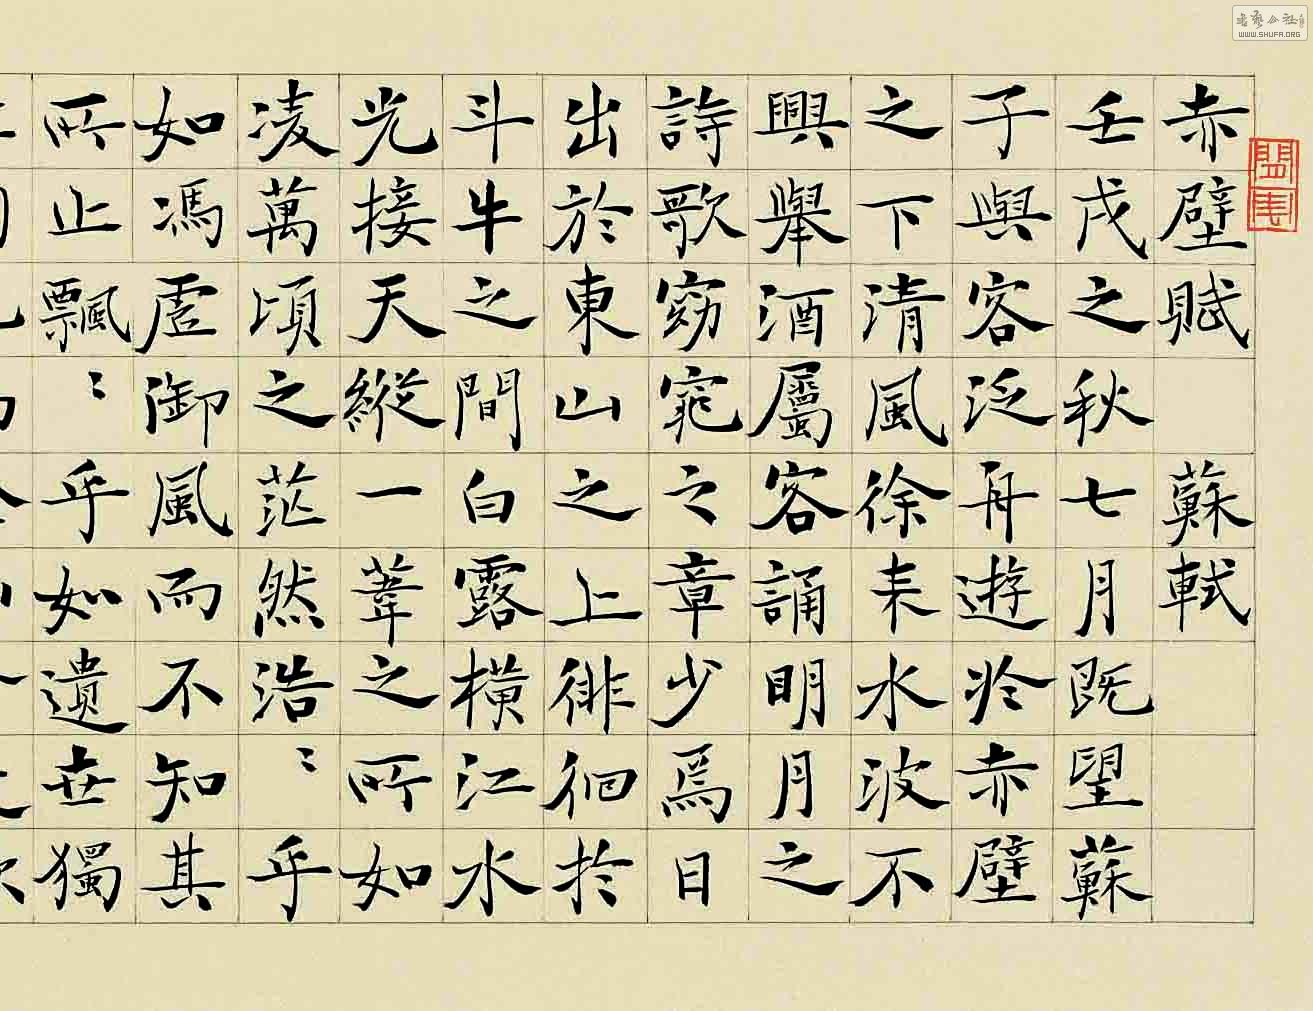 赤壁賦 蘇軾
壬戌之秋七月既望蘇
子與客泛舟遊於赤壁
之下清風徐来水波不
興舉酒屬客誦明月之
詩歌窈窕之章少焉日
出於東山之上徘徊於
斗牛之間白露橫江水
光接天縱一葦之所如
凌萬頃之茫然浩〻乎
如馮虛御風而不知其
所止飄〻乎如遺世獨
WWW.SHUFA.ORG